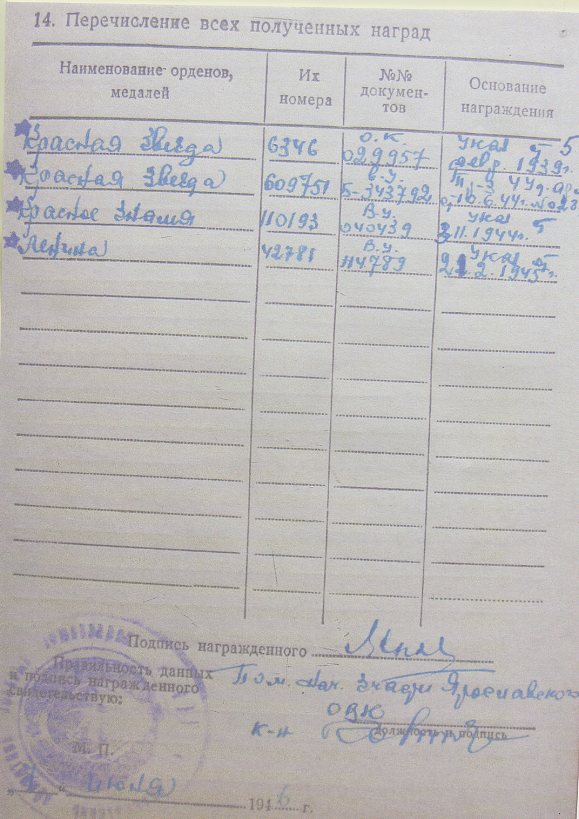 14. Перечисление всех полученных наград
Наименование орденов, медалей
Их номера
№№ документов
Основание награждения
Красная Звезда 6346 о.к. 029957 Указ 5 февр. 1939г.
Красная Звезда 609751 в.у. Б-343792 4 уд. ар. 10.6.44г.
Красное Знамя 110193 в.у. 040439 Указ 3.11.1944г.
Ленина 42781 в.у. Указ 21.2.1945г.
Подпись награжденного
Правильность данных
и подпись награжденного
свидетельствую:
Пом. нач. Ярославского
ОВК
к-н
Должность и подпись
М. П.
" " июля 1946 г.